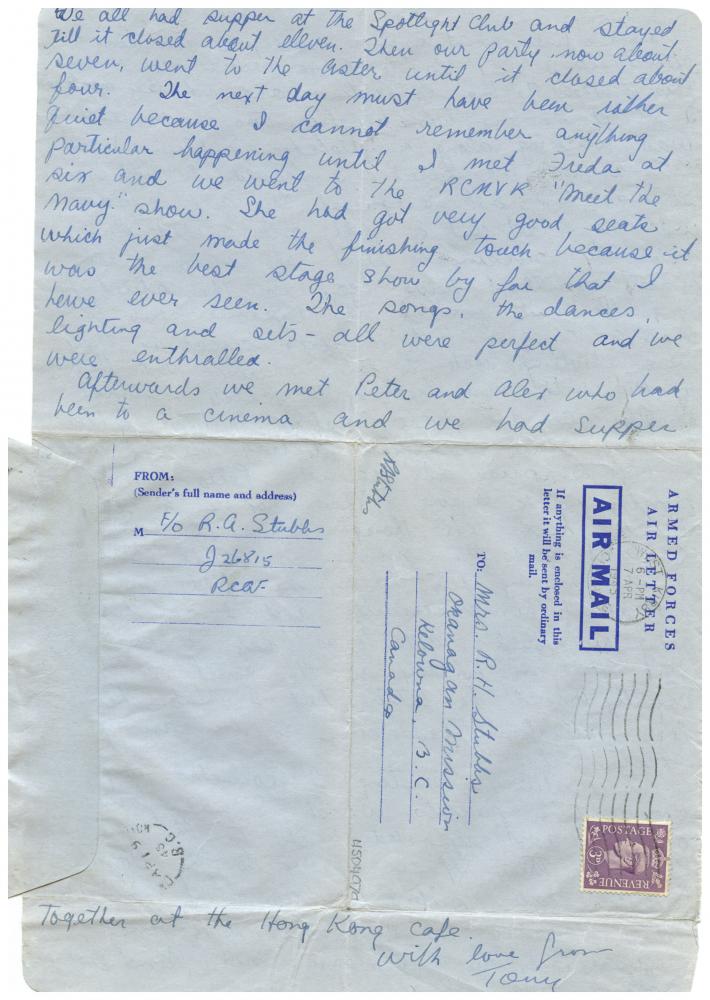 We all had supper at the Spotlight Club and stayed
till it closed about elleven. Then our party, now about
seven, went to the Astor until it closed about
four. The next day must have been rather
quiet because I cannot remember anything
particular happening until I met Freda at
six and we went to the RCNVR "Meet the
Navy" show. She had got very good seats
which just made the finishing touch because it
was the best stage show by far that I
have ever seen. The songs, the dances,
lighting and sets - all were perfect and we
were enthralled.
Afterwards we met Peter and Alex who had
been to a cinema and we had supper
FROM:
(Sender's full name and address)
M F/O R.A. Stubbs
J 26815
RCAF
ARMED FORCES
AIR LETTER
AIR MAIL
If anything is enclosed in this
letter it will be sent by ordinary
mail.
6 - PM
7 APR
TO: Mrs. R.H. Stubbs
Okanagan Mission
Kelowna, B.C.
Canada
POSTAGE
3D
REVENUE
AP 19
45
B.C.
together at the Hong Kong cafe.
with love from
Tony